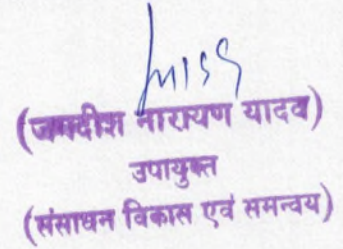 (जगदीश नारायण यादव)
उपायुक्त
(संसाधन विकास एवं समन्वय)